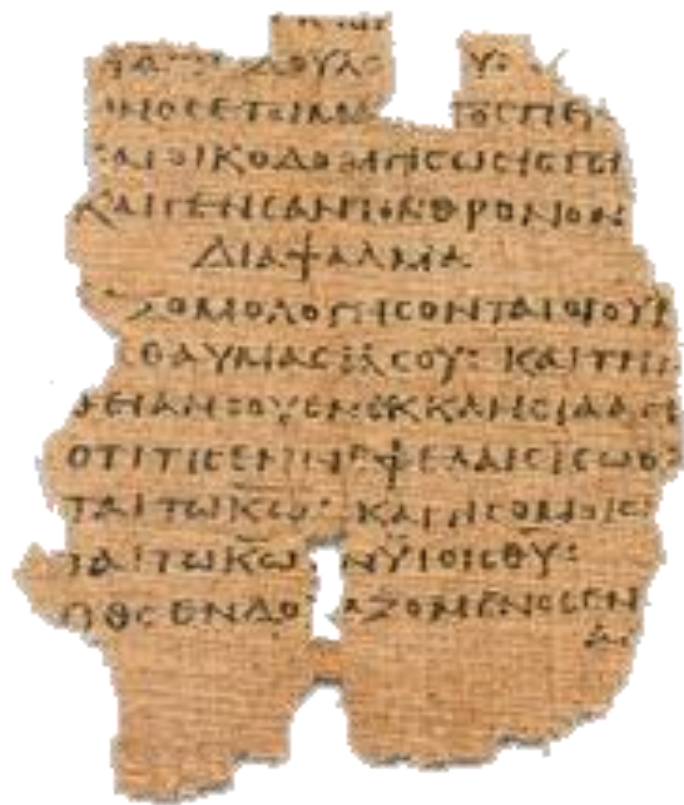 ΔΟΥΛΩ ΥΟ
ΝΟϹΕΤΟΙΜΑ ΤΟϹΠΕΡ
ΚΑΙΟΙΚΟΔΟΜΗϹΩΕΙϹΓΕΝ
ΚΑΙΓΕΝΕΑΝΤΟΝΘΡΟΝΟΝ
ΔΙΑΨΑΛΜΑ
ΞΟΜΟΛΟΓΗϹΟΝΤΑΙΟΙΟΥΡ
ΘΑΥΜΑϹΙΑϹΟΥ: ΚΑΙΤΗΝ
ΘΕΙΑΝϹΟΥΕΝΕΚΚΛΗϹΙΑΑΓΙ
ΟΤΙΤΙϹΕΝΝΕΦΕΛΑΙϹΙϹΩΘΗ
ΤΑΙΤΩΚ̅Ω̅: ΚΑΙΤΙϹΟΜΟΙΩ
ΤΑΙΤΩΚ̅Ω̅ ΝΫΙΟΙϹΘ̅Υ̅:
Ο ΘϹ ΕΝΔΟ ΑΖΟΜΕΝΟϹΕΝ